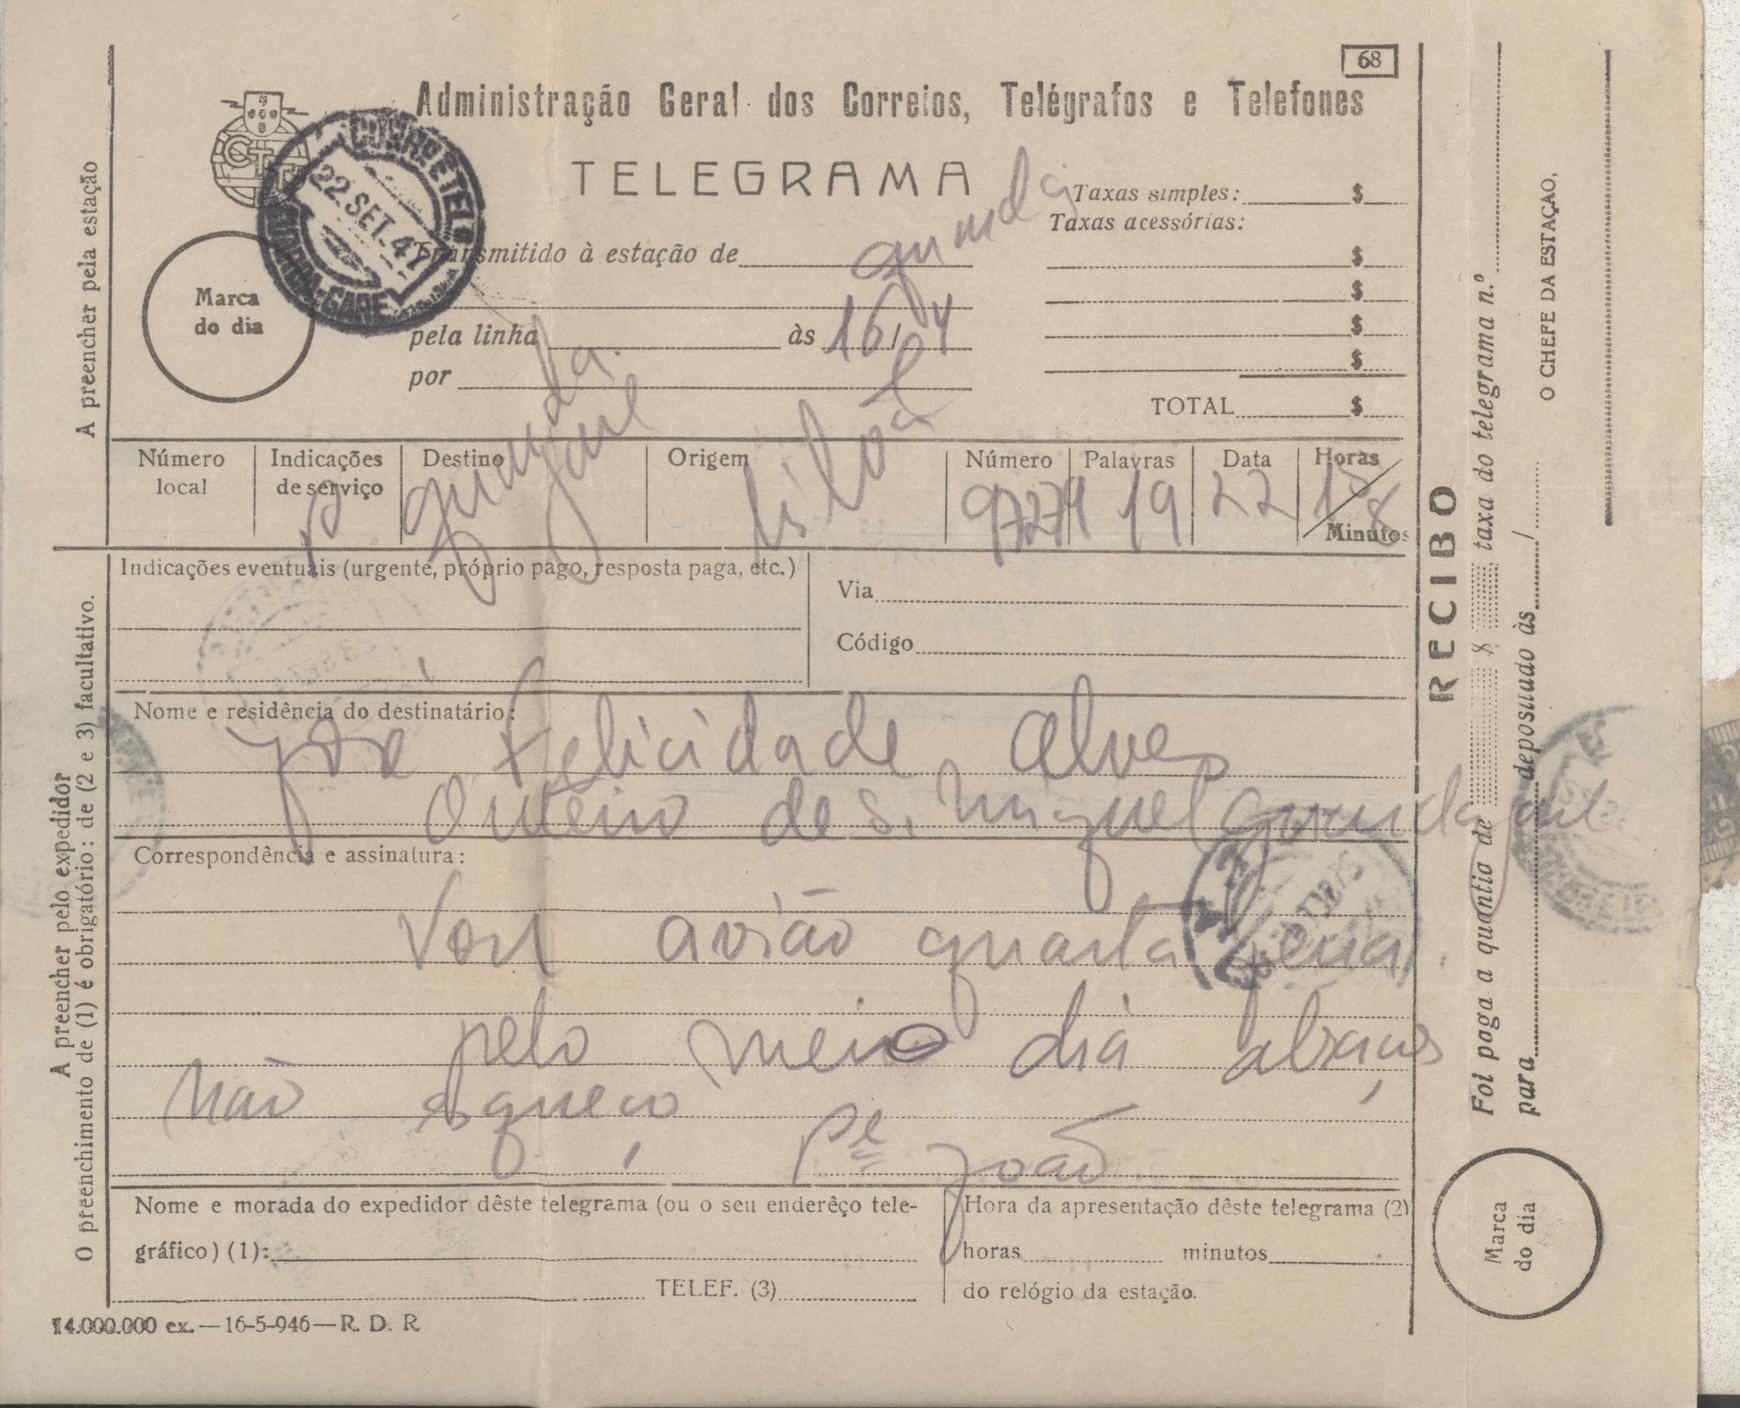 68
Administração Geral dos Correios, Telégrafos e Telefones
TELEGRAMA
CTT
CORREIO E TELEG
22.SET.47
GUARDA-GARE
Marca
do dia
Transmitido à estação de guarda
pela linha às 16/
por
Taxas simples: $
Taxas acessórias:
$
$
$
$
TOTAL $
A preencher pela estação
Número
local
Indicações
de serviço
Destino
guarda
gare
Origem
Lisboa
Número
Palavras
19
Data
22
Horas
Minutos
Indicações eventuais (urgente, próprio pago, resposta paga, etc.)
Via
Código
Nome e residência do destinatário:
José Felicidade Alves
Outeiro de S. Miguel Guarda gare
Correspondência e assinatura:
Vou avião quarta feira
pelo meio dia abraços
não esqueço
Pe João
A preencher pelo expedidor
O preenchimento de (1) é obrigatório: de (2 e 3) facultativo.
Nome e morada do expedidor dêste telegrama (ou o seu enderêço tele-
gráfico) (1):
TELEF. (3)
Hora da apresentação dêste telegrama (2)
horas minutos
do relógio da estação.
14.000.000 ex.—16-5-946—R. D. R.
RECIBO
Foi paga a quantia de $ taxa do telegrama n.º
para depositado às /
O CHEFE DA ESTAÇÃO,
Marca
do dia